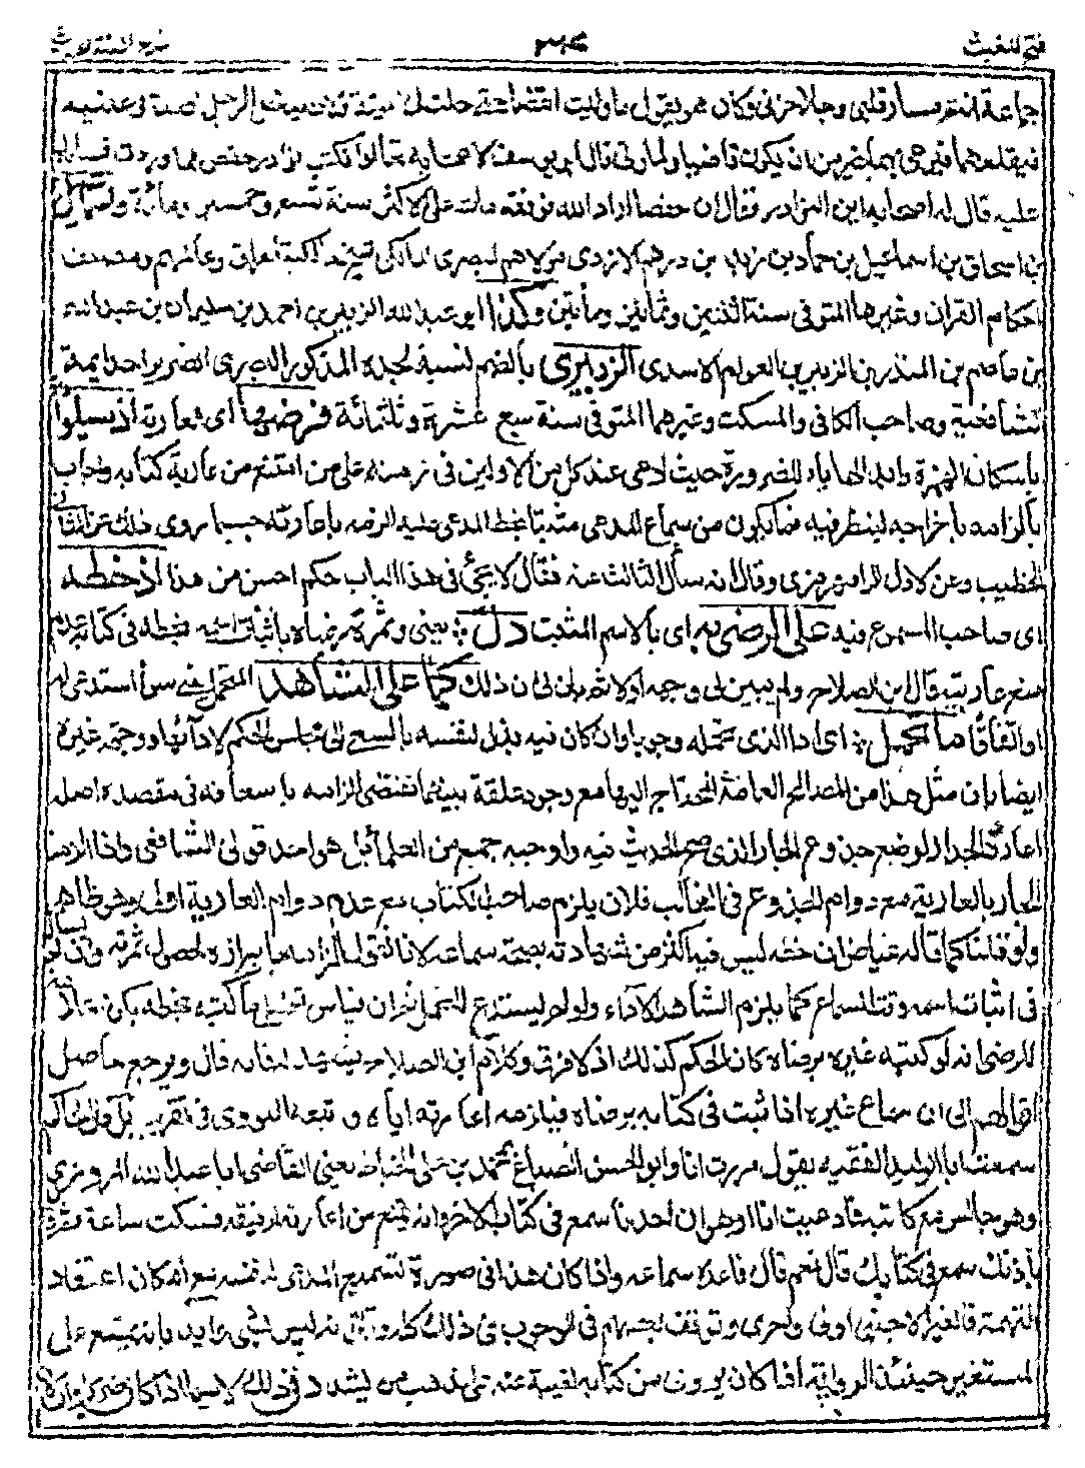 فتح المغيث
شرح الفية الحديث
جماعة انه قلبي وكان هو يقول ما وليت القضاء حتى حلت لي الميتة
فيقلعهما فيرمي بهما خير من ان يكون قاضيا ولما ولي قال ابو يوسف لاصحابه تعالوا نكتب نوادر حفص فلما وردت
عليه قال له اصحابه اين النوادر فقال ان حفصا اراد الله فوفقه مات على الاكثر سنة تسع وتسعين ومائة واسمعيل
بن اسحاق بن اسماعيل بن حماد بن زيد بن درهم الازدي مولاهم البصري المالكي شيخ مالكية العراق وعالمهم ومصنف
احكام القران وغيرها المتوفى سنة اثنين وثمانين ومأتين وكذا ابو عبد الله الزبير بن احمد بن سليمان بن عبد الله
بن عاصم بن المنذر بن الزبير بن العوام الاسدي الزبيري بالضم نسبة لجده المذكور البصري الضرير احد ايمة
الشافعية وصاحب الكافي والمسكت وغيرهما المتوفى سنة سبع عشرة وثلثمائة فرضها اى العارية اذ سيلوا
باسكان الهمزة وابدالها ياء للضرورة حيث ادعى عند كل من الاولين في زمنه على من امتنع من عارية كتابه واجاب
بالزامه باخراجه لينظر فيه فما يكون من سماع المدعي مثبتا بخط المدعى عليه الزمه باعارته حسبما روى ذلك عن الثاني
الخطيب وعن الاول الرامهرمزي وقال انه سأل الثالث عنه فقال لا يجئ في هذا الباب حكم احسن من هذا اذ خطه
اى صاحب المسموع فيه على الرضى به اى بالاسم المثبت دل يعني وثمرة رضاه باثبات اسمه بخطه في كتابه عدم
منع عاريته قال ابن الصلاح ولم يبين لي وجهه اولا ثم بان لي ان ذلك كما على الشاهد المتحمل يعني سواء استدعى له
او اتفاقا ما تحمل اى اداء الذى تحمله وجوبا وان كان فيه بذل لنفسه بالسعي الى مجلس الحكم لادآئها ووجهه غيره
ايضا بان مثل هذا من المصالح العامة المحتاج اليها مع وجود علقة بينهما تقتضي الزامه باسعافه في مقصده اصله
اعارة الجدار لوضع جذوع الجار الذى صح الحديث فيه واوجبه جمع من العلماء بل هو احد قولى الشافعي واذا الزمنا
الجار بالعارية مع دوام الجذوع في الغالب فلان يلزم صاحب الكتاب مع عدم دوام العارية اولى وهو ظاهر
ولو قلنا كما قاله عياض ان خطه ليس فيه اكثر من شهادته بصحة سماعه لانا نقول الزامه بابرازه لحصول ثمرته وان لم
في اثبات اسمه وقت السماع كما يلزم الشاهد الاداء ولو لم يستدع للتحمل ثم ان قياس تعليلها كتبه بخطه بكونه علامة
للرضى انه لو كتبه غيره برضاه كان الحكم كذلك اذ لا فرق وكلام ابن الصلاح يشهد له فانه قال ويرجع حاصل
اقوالهم الى ان سماع غيره اذا ثبت في كتابه برضاه فيلزمه اعارته اياه وتبعه النووي في تقريبه بل قال الحاكم
سمعت ابا الوليد الفقيه يقول مررت انا وابو الحسن الصباغ بمحمد بن على الخياط يعني القاضي ابا عبد الله المروزي
وهو جالس مع كاتبه فادعيت انا او هو ان احدنا سمع في كتاب الاخر وانه يمتنع من اعارته لرفيقه فسكت ساعة ثم قال
باذنك سمع في كتابك قال نعم قال فاعره سماعه واذا كان هذا في صورة تسميع المدعى له نفسه مع امكان اعتقاد
التهمة فالغير الاجنبي اولى واحرى وتوقف بعضهم في الوجوب في ذلك كله وقال انه ليس بشئ وايد بانه يمتنع على
المستعير حينئذ الرواية اذا كان يروي من كتابه لغيبة عنه على مذهب من يشدد في ذلك لا سيما اذا كان